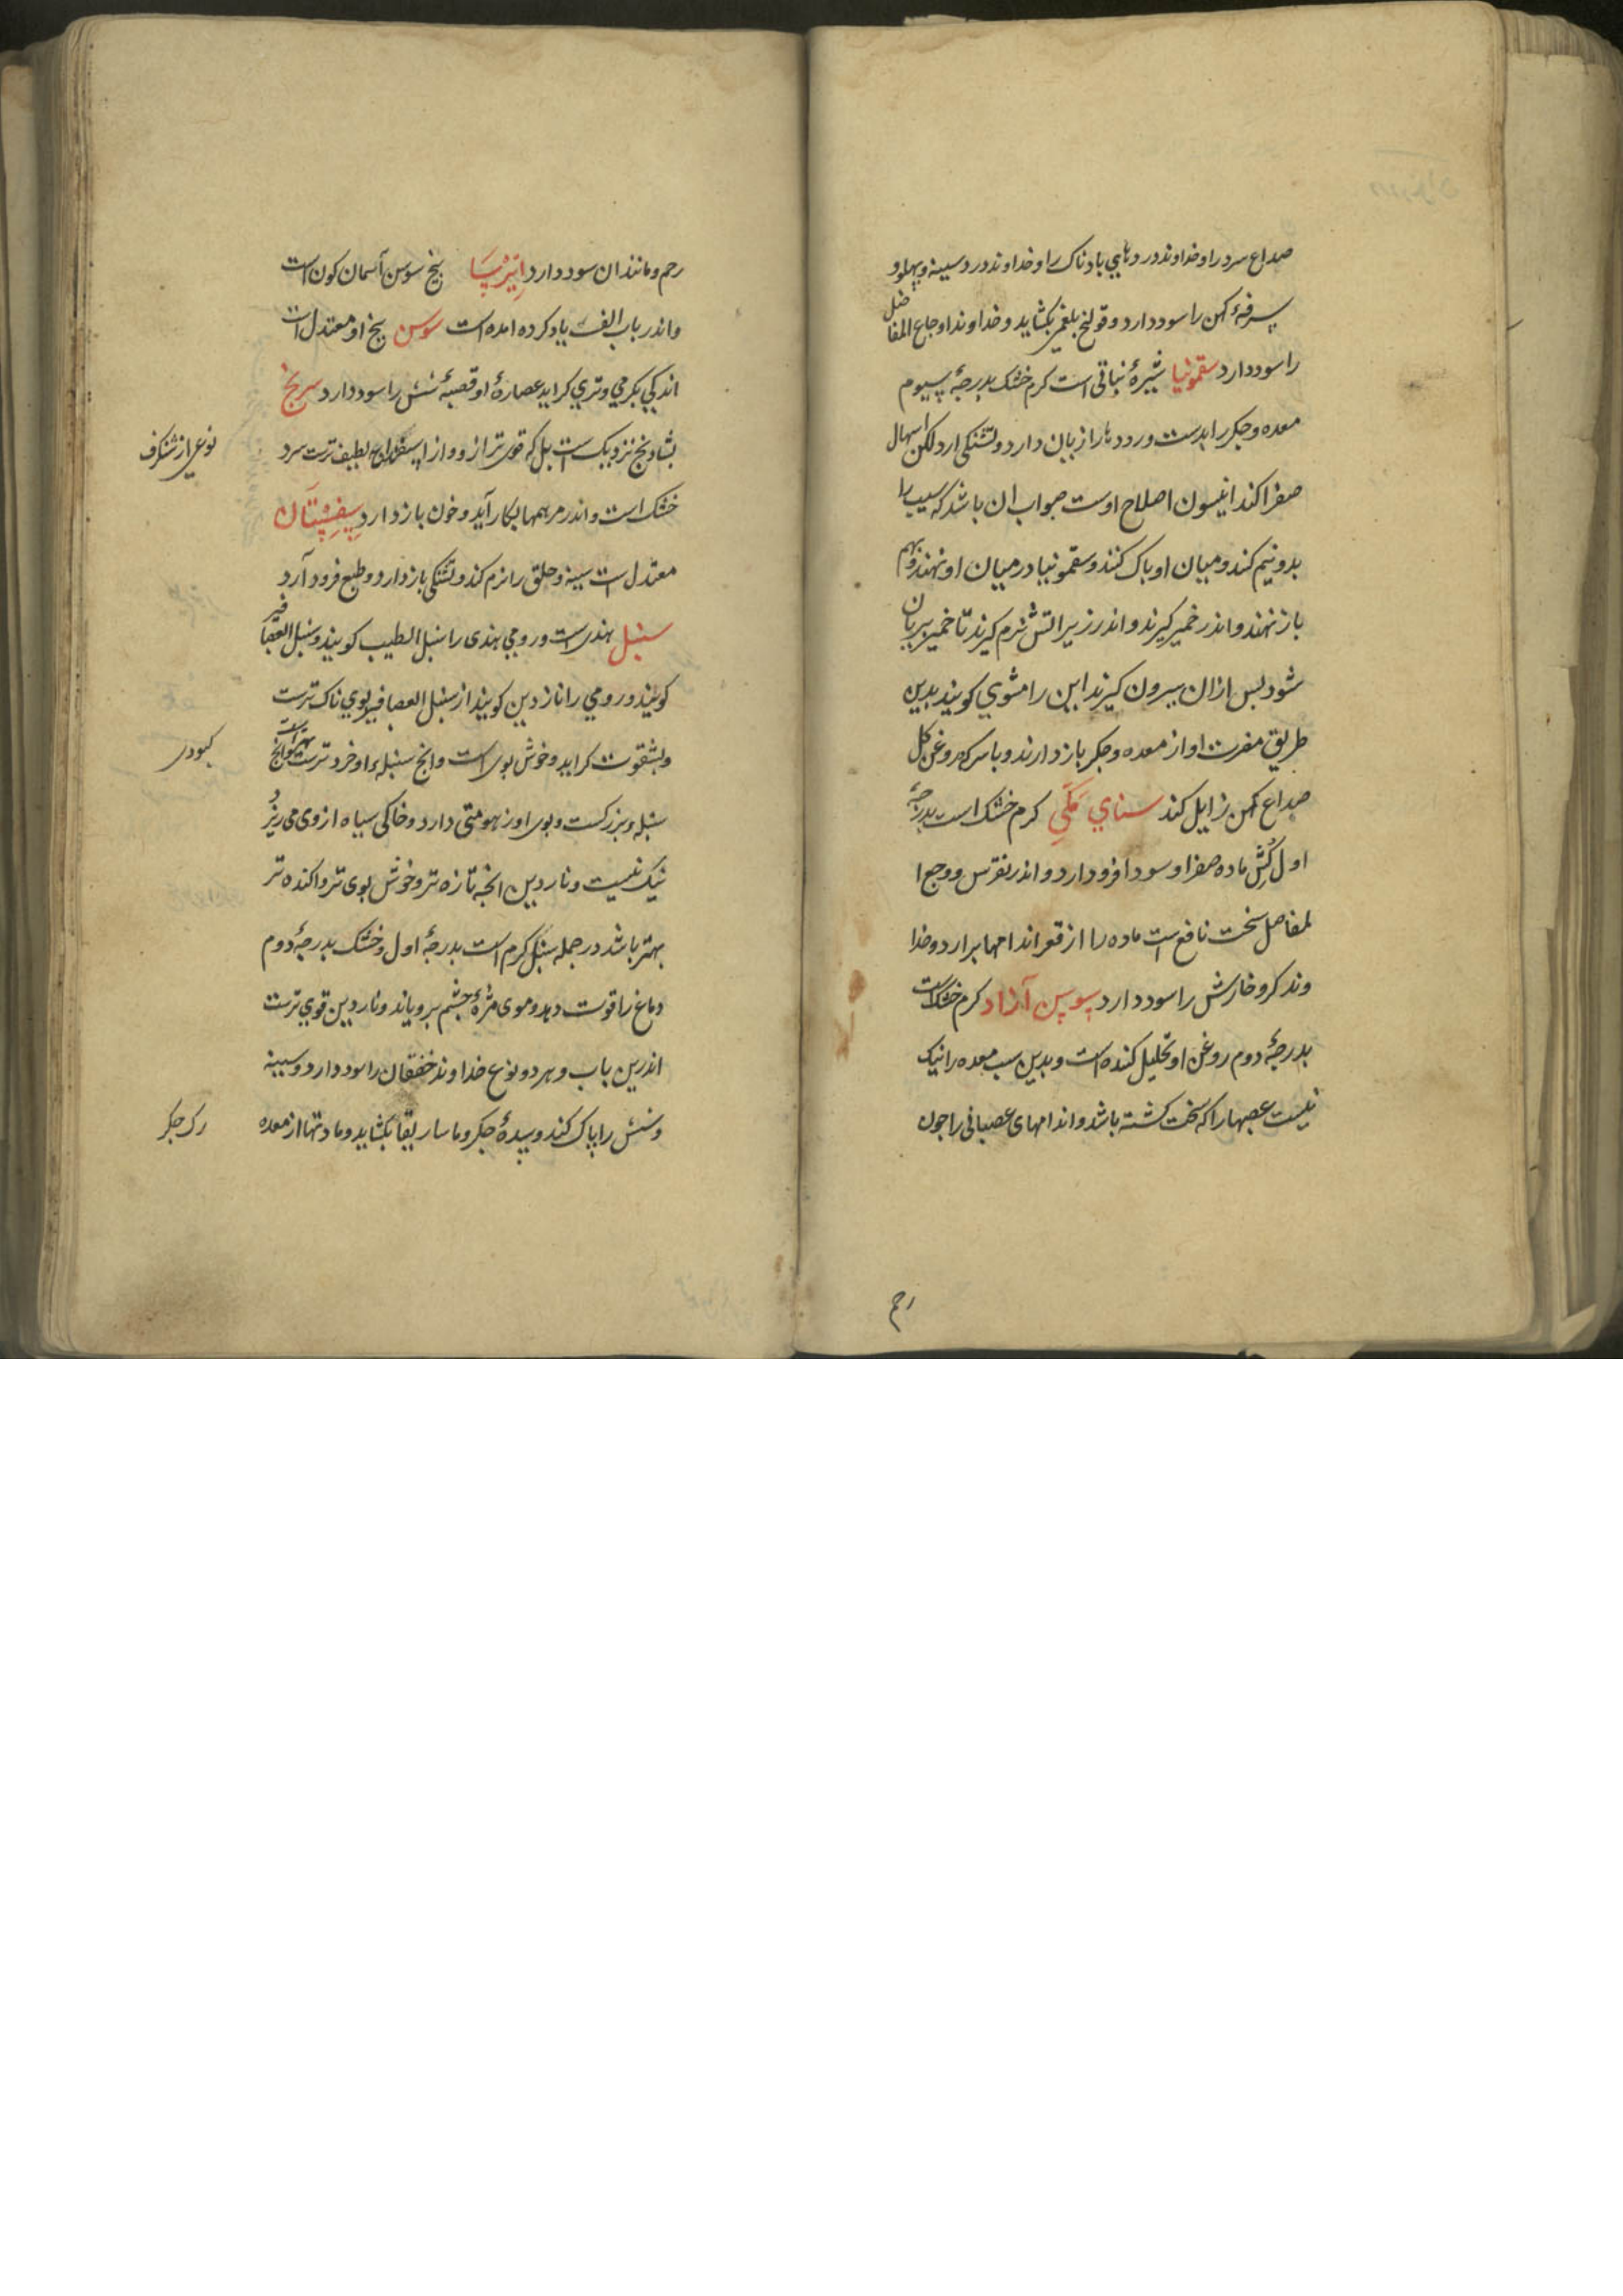 صداع سرد را و خداوند درد هایی بادناک را و خداوند درد سینه و پهلو و
سرفهٔ کهن را سود دارد و قولنج بلغمی بکشاید و خداوند اوجاع المفاصل
را سود دارد سقمونیا شیرهٔ نباتی است کرم خشک بدرجهٔ سیوم
معده و جکر را بدست و دل را زیان دارد و تشنکی ارد لکن اسهال
صفرا کند انیسون اصلاح اوست صواب ان باشد که سیب را
بدو نیم کند و میان او پاک کنند و سقمونیا در میان او نهند و بهم
باز نهند و اندر خمیر کیرند و اندر زیر اتش نرم کیرند تا خمیر بریان
شود بس ازان بیرون کیرند این را مشوی کویند بدین
طریق مضرت او از معده و جکر باز دارند و با سرکه و روغن کل
صداع کهن زایل کند سنای مکی کرم خشک است بدرجهٔ
اول کُش ماده صفرا و سودا فرود ارد و اندر نقرس و وجع ا
لمفاصل سخت نافع است ماده را از قعر اندامها برارد و خدا
وند کر و خارش را سود دارد سوسن آزاد کرم خشک است
بدرجهٔ دوم روغن او تحلیل کننده است و بدین سبب معده را نیک
نیست عصبها را که سخت کشته باشد و اندامهای عصبانی را جون
رحم
رحم و مانند ان سود دارد ایرسا بیخ سوسن آسمان کون است
و اندر باب الف یاد کرده امده است سوس بیخ او معتدل است
اندکی بکرمی و تری کراید عصارهٔ او قصبهٔ شش را سود دارد سرنج
بشادنج نزدیک است بل که قوی تر ازو و از اسفیداج لطیف ترست سرد
نوعی از شنکرف
خشک است و اندر مرهمها بکار آید و خون باز دارد سفستان
معتدل است سینه و حلق را نرم کند و تشنکی باز دارد و طبع فرود آرد
سنبل هندیست و رومی هندی را سنبل الطیب کویند و سنبل العصافیر
کویند و رومی را ناردین کویند از سنبل العصافیر بوی ناک ترست
و بشقوت کراید و خوش بوی است و انج سنبله او خرد ترست بهتر است و انج
کبودی
سنبله بزرکست و بوی او زهومتی دارد و خاکی سیاه از وی می ریزد
نیک نیست و ناردین انجه تازه تر و خوش بوی تر و اکنده تر
بهتر باشد در جمله سنبل کرم است بدرجهٔ اول و خشک بدرجهٔ دوم
دماغ را قوت دهد و موی مژهٔ جشم برویاند و ناردین قوی ترست
اندرین باب و هر دو نوع خداوند خفقان را سود دارد و سینه
و شش را پاک کند و سدهٔ جکر و ماساریقا بکشاید و مادتها از معده
رک جکر